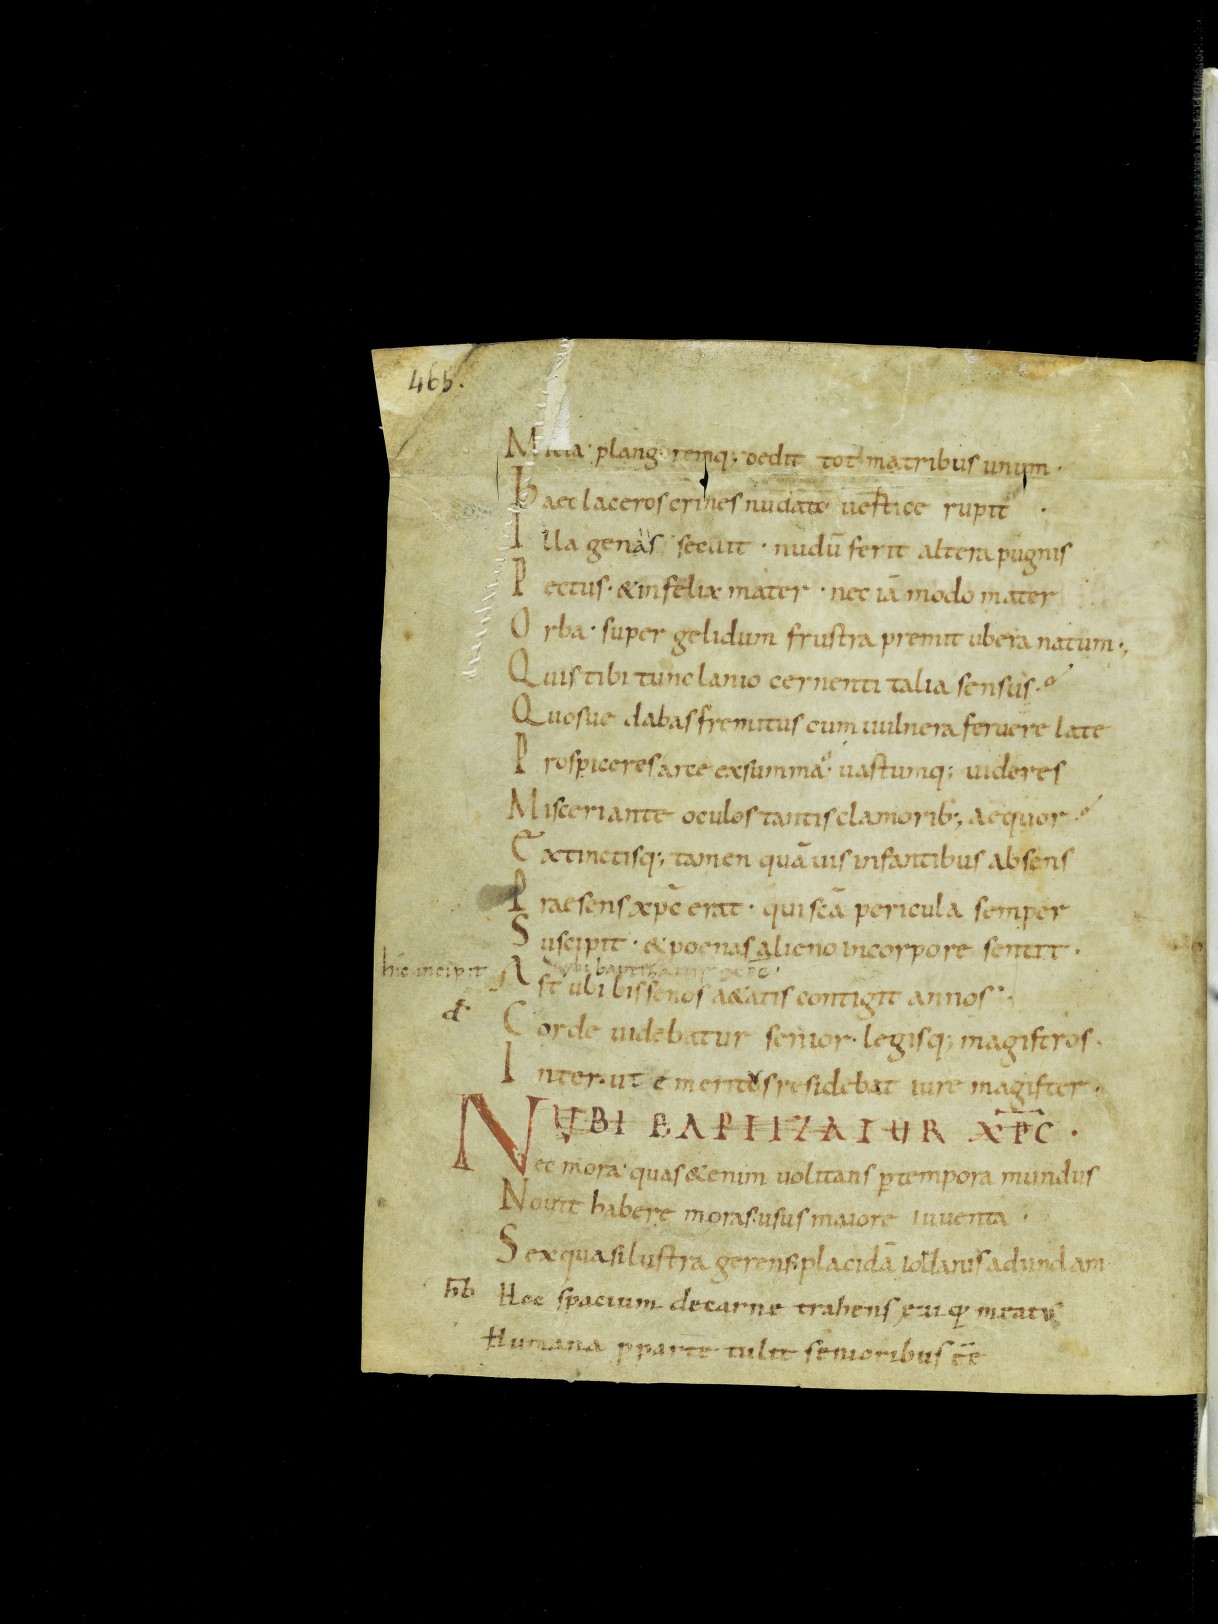 465.
Milia· plangoremq; dedit tot matribus unum·
Haec laceros crines nudato uertice rupit ·
Illa genas secuit · nudū ferit altera pugnis
Pectus· & infelix mater · nec iā modo mater
Orba· super gelidum frustra premit ubera natum·,
Quis tibi tunc lanio cernenti talia sensus·
Quosue dabas fremitus cum uulnera feruere late
Prospiceres arce ex summa· uastumq; uideres
Misceri ante oculos tantis clamorib; aequor·
Extinctisq; tamen quāuis infantibus absens
Praesens xp̄c erat · qui sc̄a pericula semper
Suscipit · & poenas alieno in corpore sentit ·
hic incipit ubi baptizatur xp̄c·
Ast ubi bis senos a&atis contigit annos
Corde uidebatur senior· legisq; magistros·
Inter· ut emeritos residebat iure magister·
UBI BAPTIZATUR XP̄C ·
Nec mora· quas &enim uolitans p tempora mundus
Nouit habere moras· usus maiore iuuenta ·
Sex quasi lustra gerens· placidā iordanis ad undam
Hoc spacium de carne trahens
Humana p parte tulit senioribus